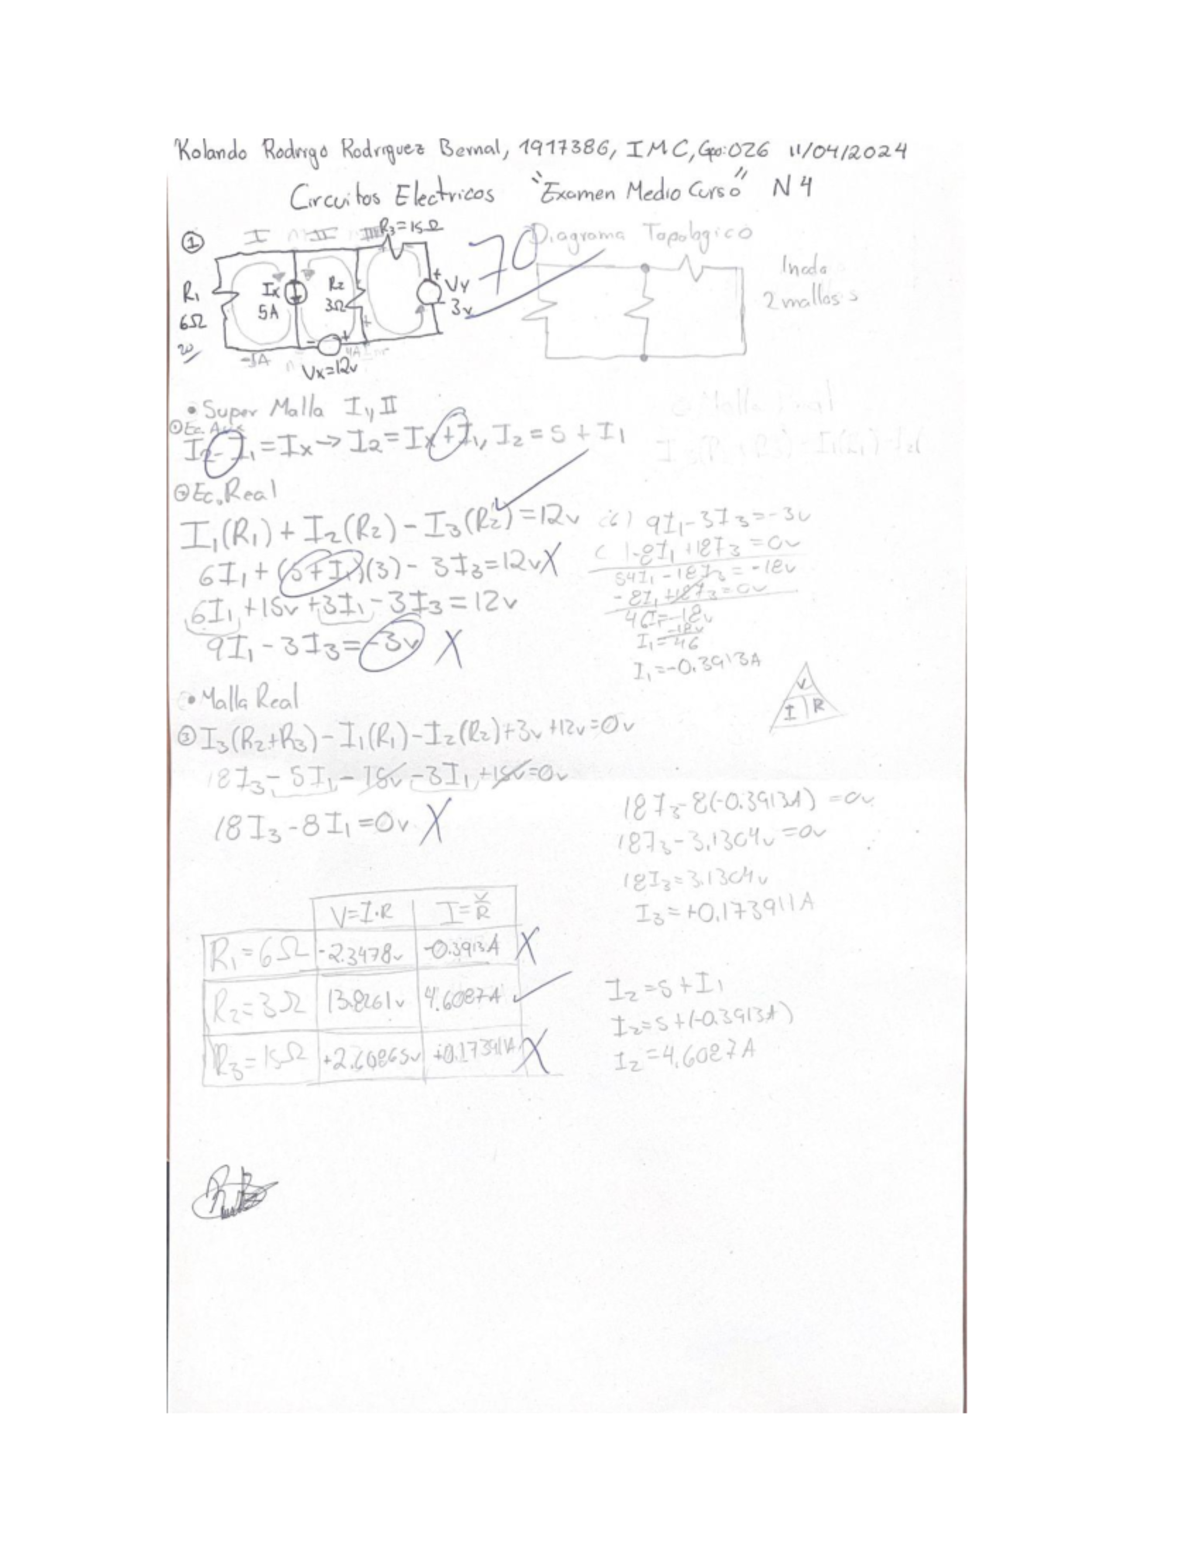 Rolando Rodrigo Rodriguez Bernal, 1917386, IMC, Gpo:026 11/04/2024
Circuitos Electricos "Examen Medio Curso" N4
① I II III R3=15Ω 70 Diagrama Topologico
R1 6Ω Ix 5A R2 3Ω + Vy - 3v
1 nodo
2 mallas
Vx=12v
• Super Malla I y II
① Ec. Aux
I2-I1=Ix→I2=Ix+I1, I2=5+I1
② Ec. Real
I1(R1)+I2(R2)-I3(R2)=12v
6I1+(5+I1)(3)-3I3=12v X
6I1+15v+3I1-3I3=12v
9I1-3I3=-3v X
(6) 9I1-3I3=-3v
( )-8I1+18I3=0v
54I1-18I3=-18v
-8I1+18I3=0v
46I=-18v
I1=-18v/46
I1=-0.3913A
V
I R
• Malla Real
③ I3(R2+R3)-I1(R1)-I2(R2)+3v+12v=0v
18I3-5I1-15v-3I1+15v=0v
18I3-8I1=0v X
18I3-8(-0.3913A)=0v
18I3-3.1304v=0v
18I3=3.1304v
I3=+0.173911A
V=I·R I=V/R
R1=6Ω -2.3478v -0.3913A X
R2=3Ω 13.8261v 4.6087A
R3=15Ω +2.60865v +0.17391A X
I2=5+I1
I2=5+(-0.3913A)
I2=4.6087A